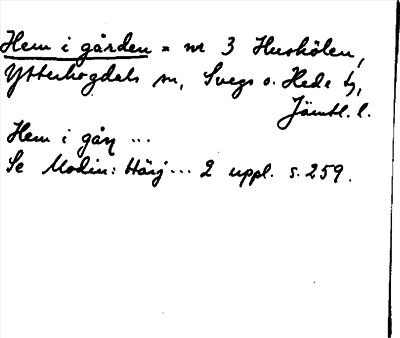 Hem i gården = nr 3 Huskölen,
Ytterhogdals sn, Svegs o. Hede tj,
Jämtl. l.
Hem i gån ...
Se Modin: Härj... 2 uppl. s. 259.